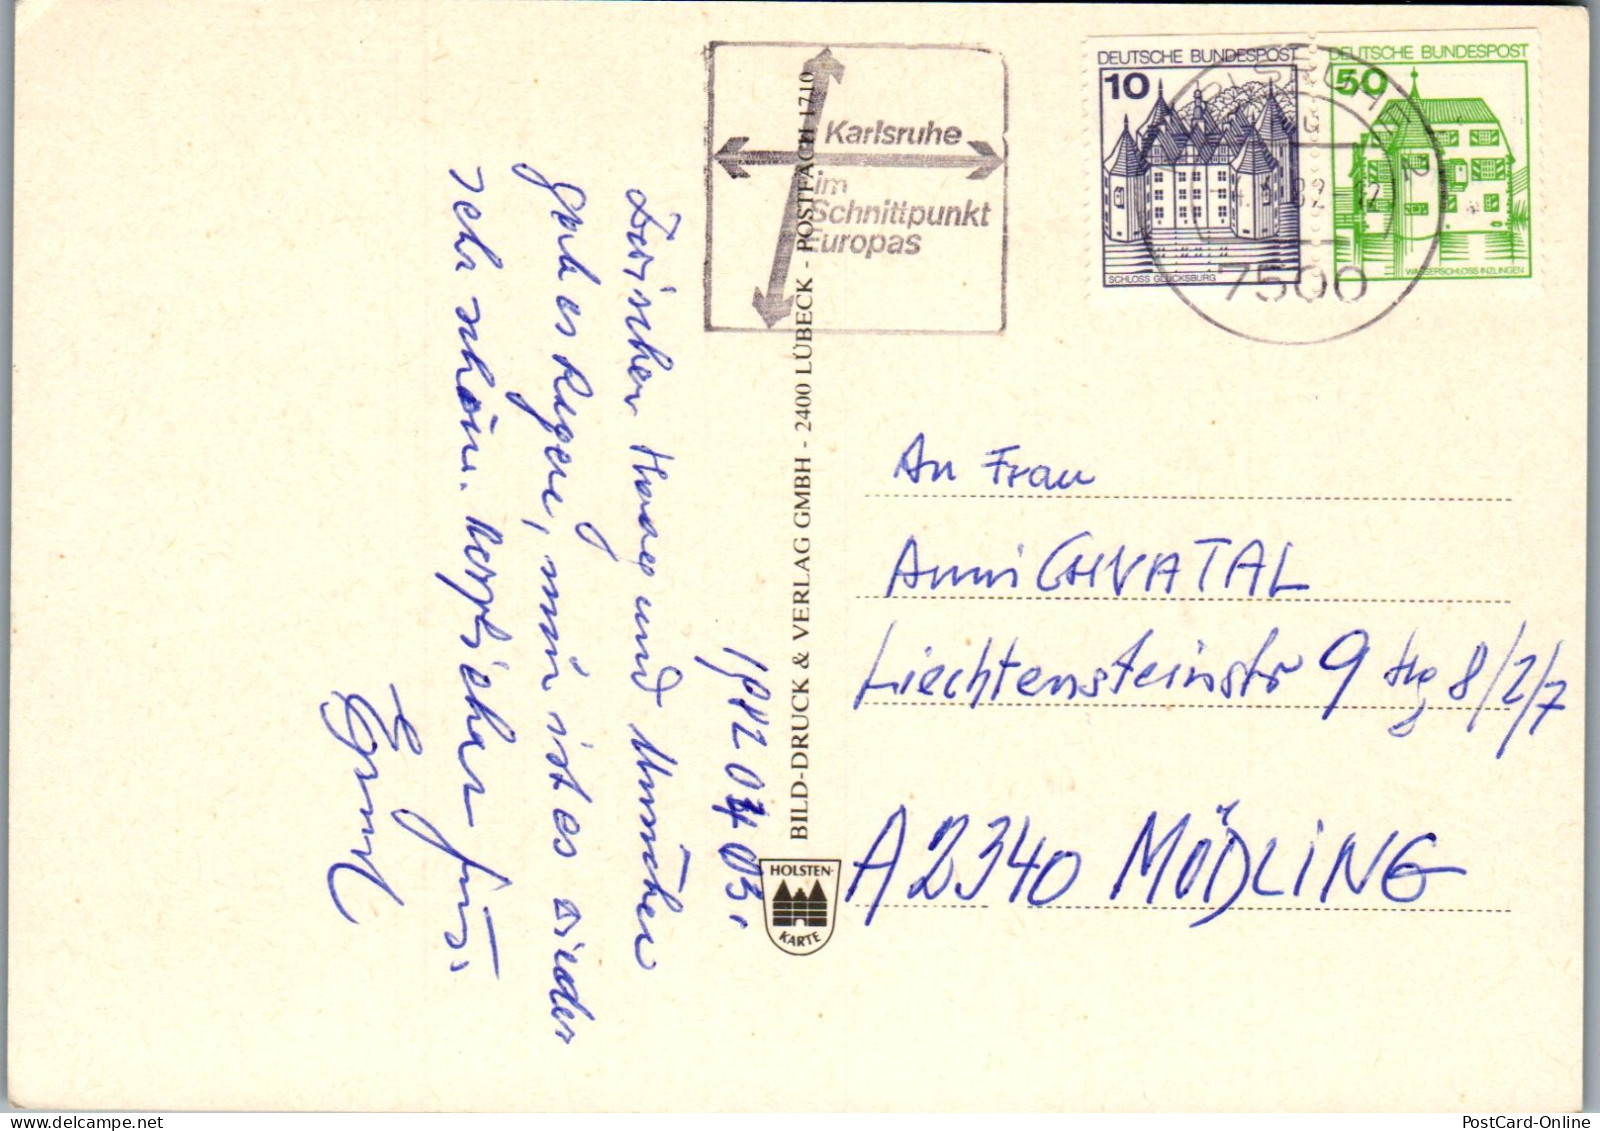 DEUTSCHE BUNDESPOST
10
SCHLOSS GLÜCKSBURG
DEUTSCHE BUNDESPOST
50
WASSERSCHLOSS INZLINGEN
KARLSRUHE
7500
Karlsruhe
im
Schnittpunkt
Europas
1982 04 03.
Zwischen Haag und München
gab es Regen, nun ist es wieder
sehr schön. Herzlichen
Ernst
BILD-DRUCK & VERLAG GMBH - 2400 LÜBECK - POSTFACH 1710
HOLSTEN-
KARTE
An Frau
Anni CHVATAL
Liechtensteinstr 9 Stg 8/2/7
A 2340 MÖDLING
PostCard-Online